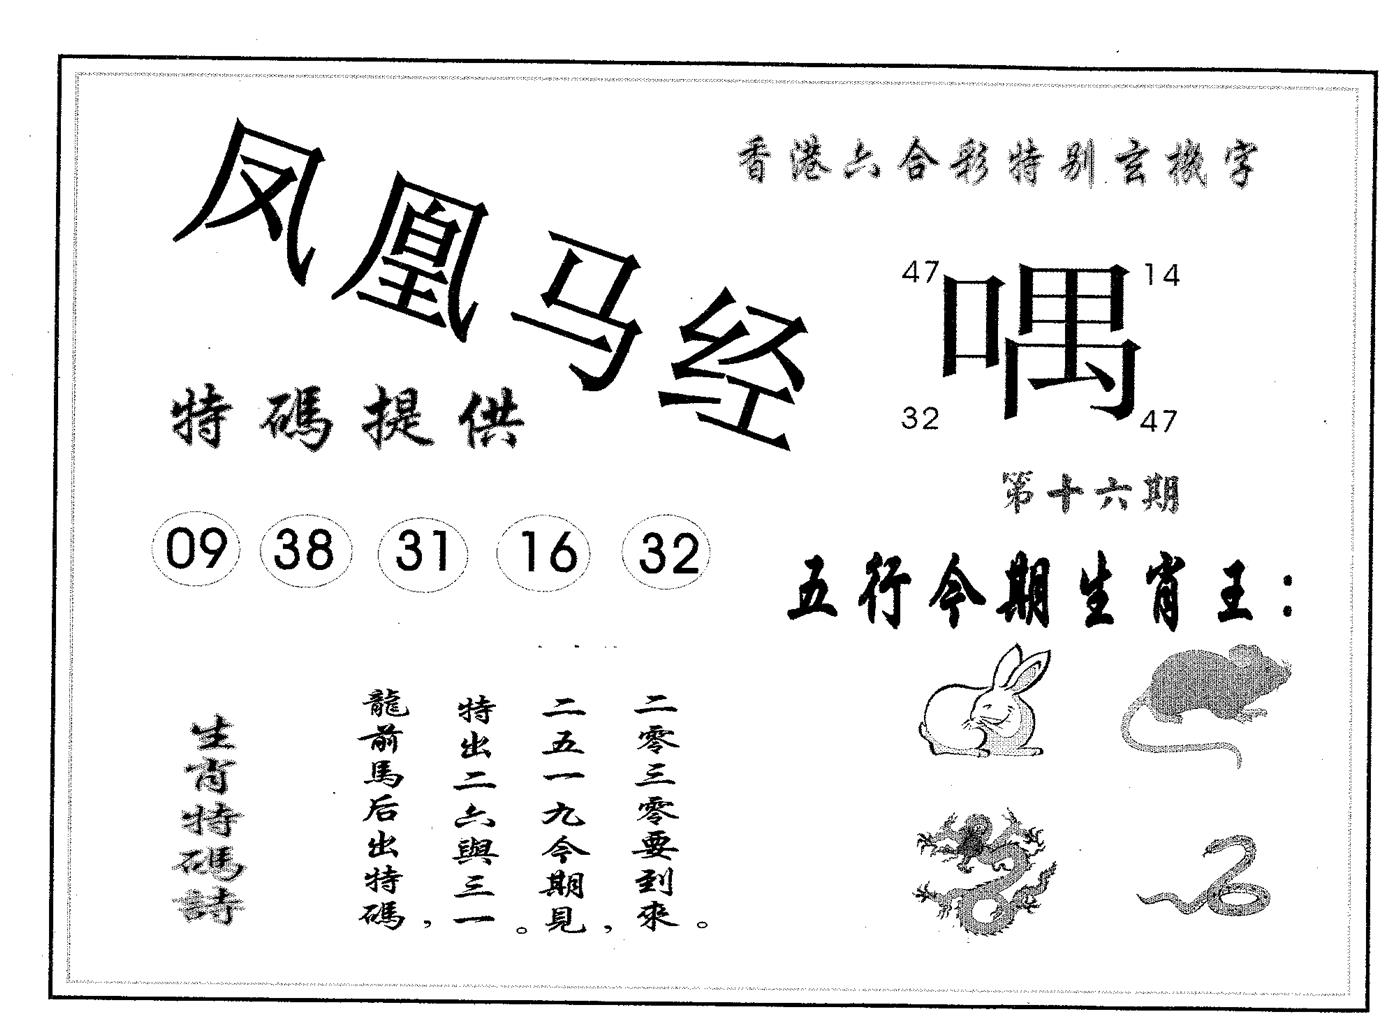 凤凰马经
香港六合彩特别玄機字
47
14
喁
32
47
特碼提供
第十六期
09 38 31 16 32
五行今期生肖王：
生肖特碼詩
龍前馬后出特碼，
特出二六與三一。
二五一九今期見，
二零三零要到來。